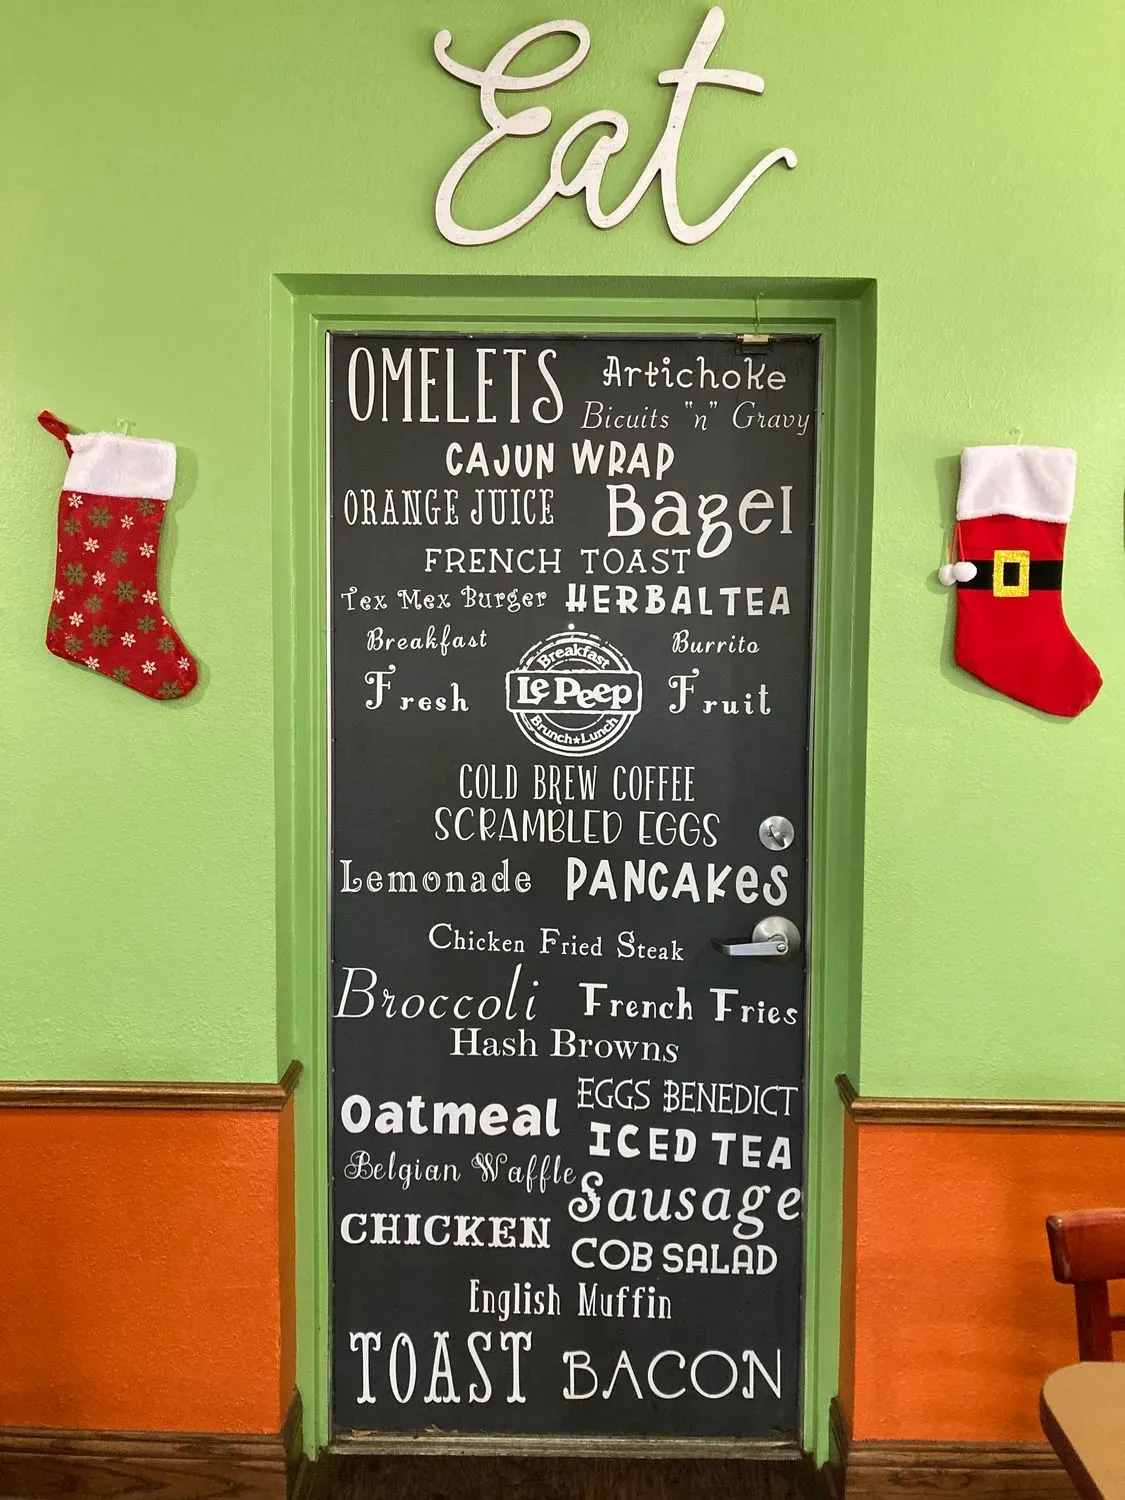 Eat
OMELETS
Artichoke
Bicuits "n" Gravy
CAJUN WRAP
ORANGE JUICE
Bagel
FRENCH TOAST
Tex Mex Burger
HERBALTEA
Breakfast
Burrito
Fresh
Breakfast
Le Peep
Brunch★Lunch
Fruit
COLD BREW COFFEE
SCRAMBLED EGGS
Lemonade
PANCAKeS
Chicken Fried Steak
Broccoli
French Fries
Hash Browns
EGGS BENEDICT
Oatmeal
ICED TEA
Belgian Waffle
Sausage
CHICKEN
COB SALAD
English Muffin
TOAST
BACON